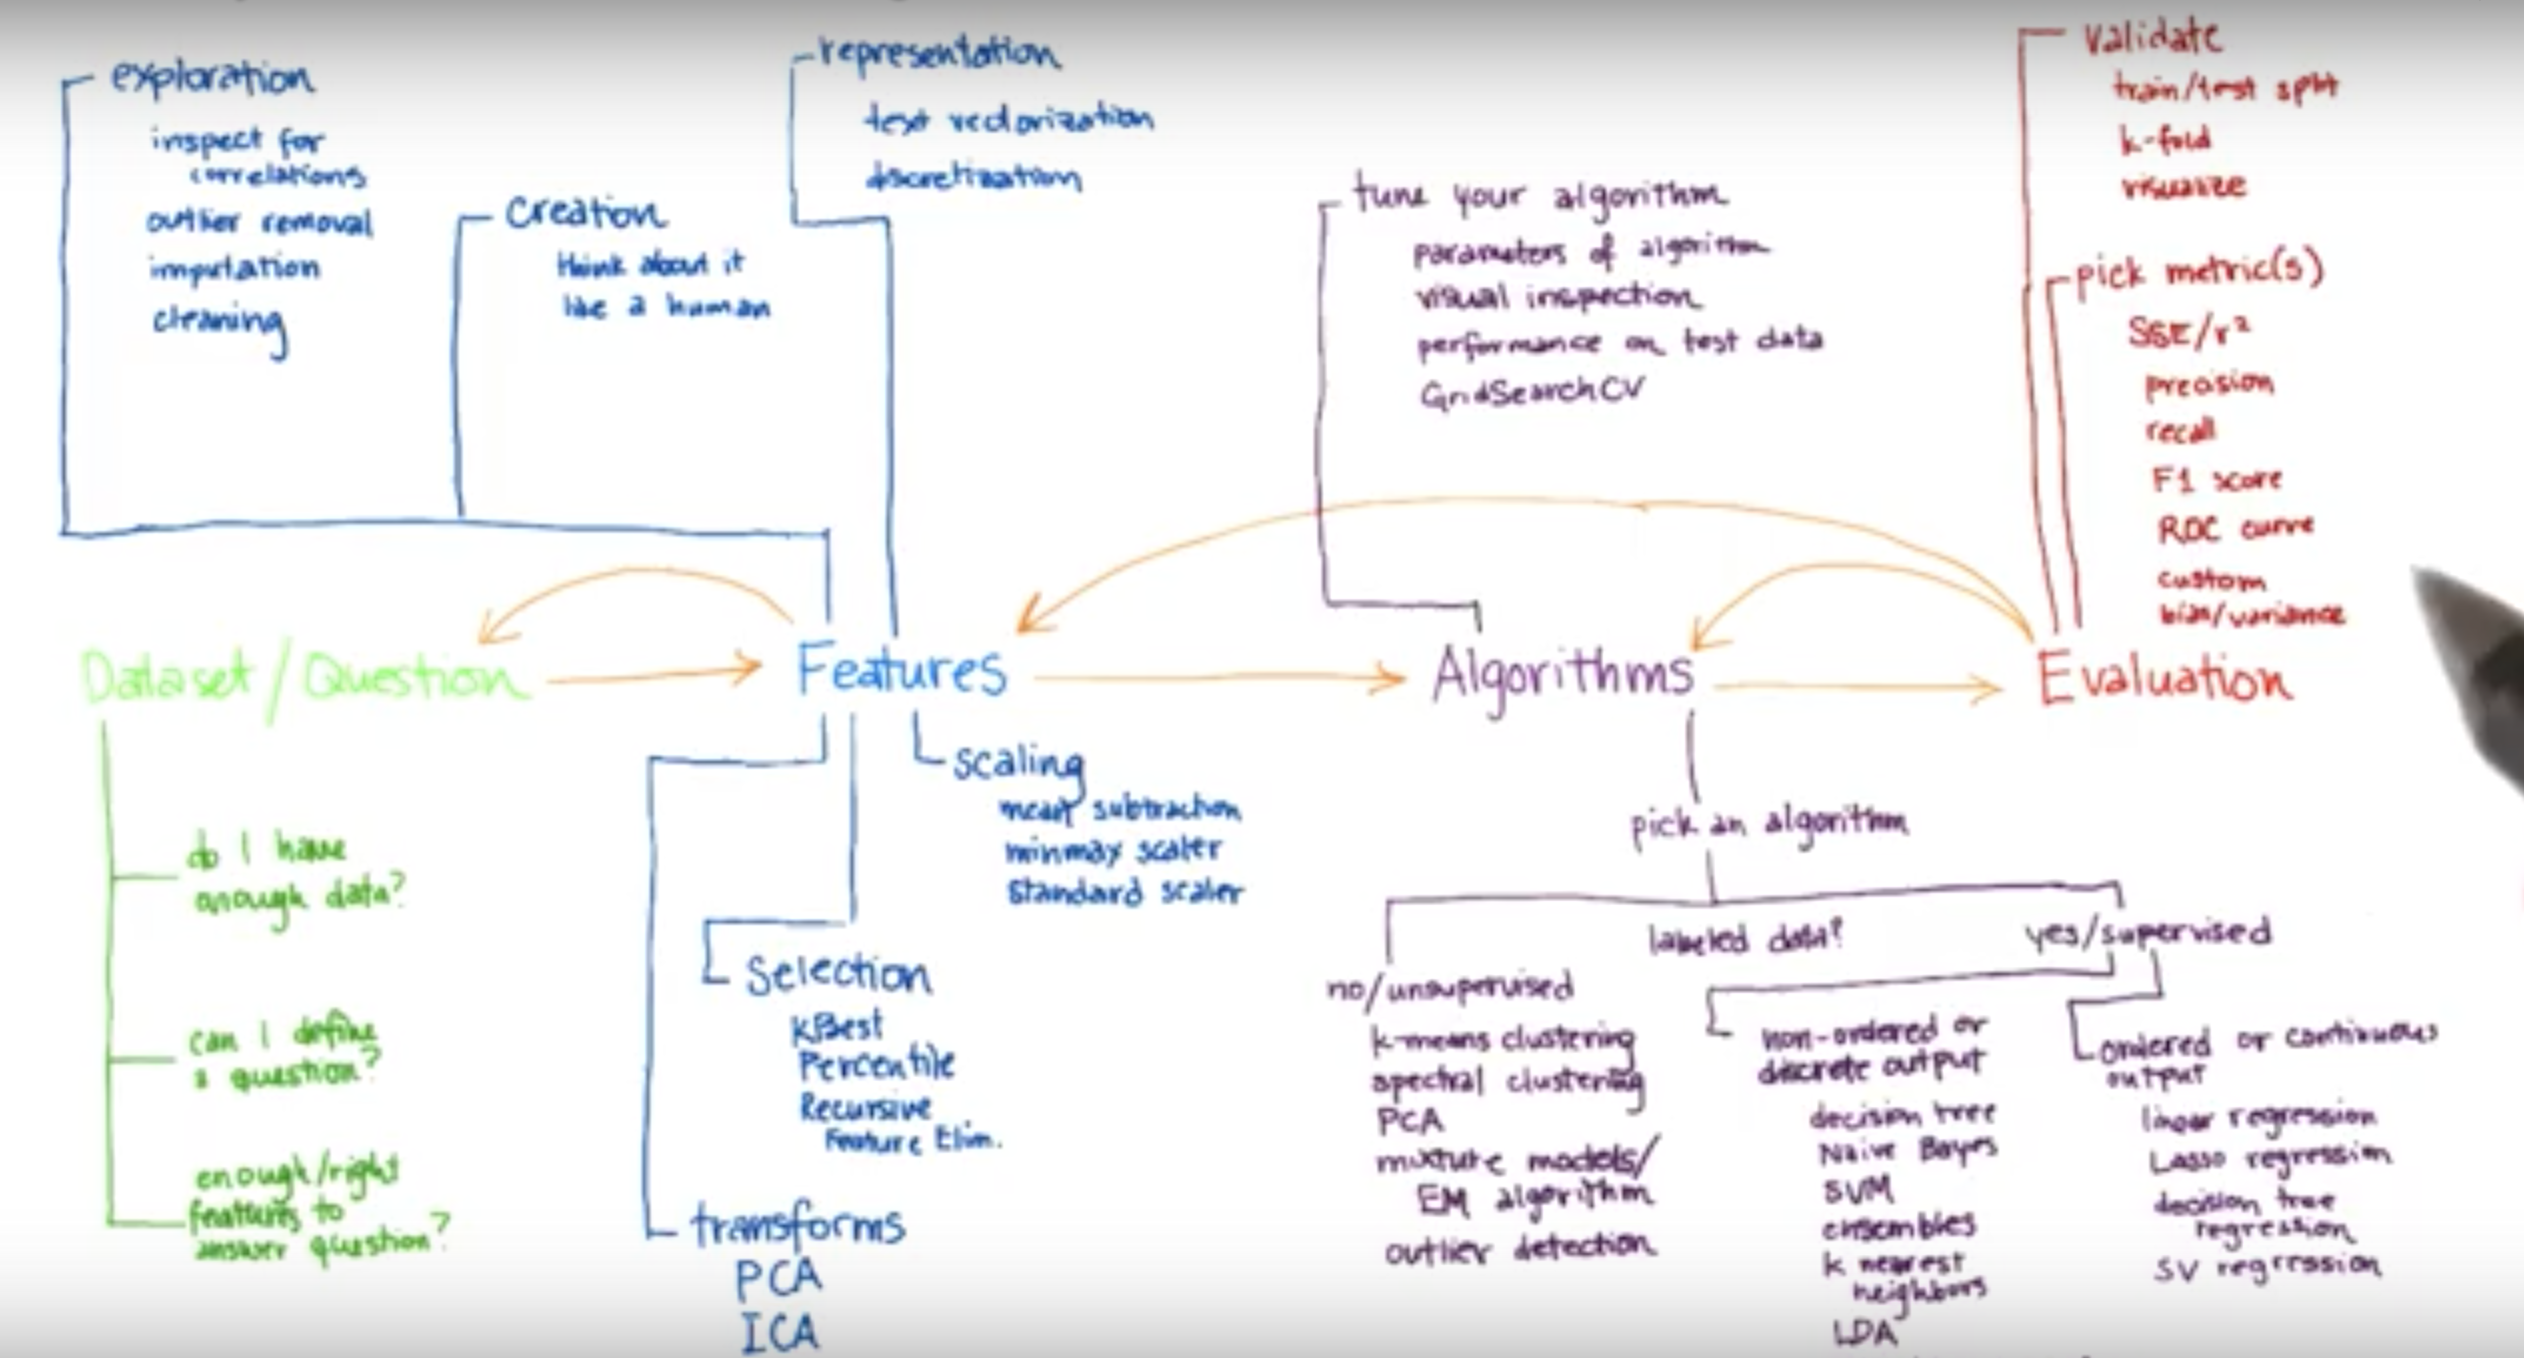 exploration
inspect for
correlations
outlier removal
imputation
cleaning
creation
think about it
like a human
representation
text vectorization
discretization
tune your algorithm
parameters of algorithm
visual inspection
performance on test data
GridSearchCV
validate
train/test split
k-fold
visualize
pick metric(s)
SSE/r²
precision
recall
F1 score
ROC curve
custom
bias/variance
Dataset/Question
Features
Algorithms
Evaluation
do I have
enough data?
can I define
a question?
enough/right
features to
answer question?
scaling
mean subtraction
minmax scaler
standard scaler
Selection
KBest
Percentile
Recursive
Feature Elim.
transforms
PCA
ICA
pick an algorithm
labeled data?
no/unsupervised
k-means clustering
spectral clustering
PCA
mixture models/
EM algorithm
outlier detection
yes/supervised
non-ordered or
discrete output
decision tree
Naive Bayes
SVM
ensembles
k nearest
neighbors
LDA
ordered or continuous
output
linear regression
Lasso regression
decision tree
regression
SV regression